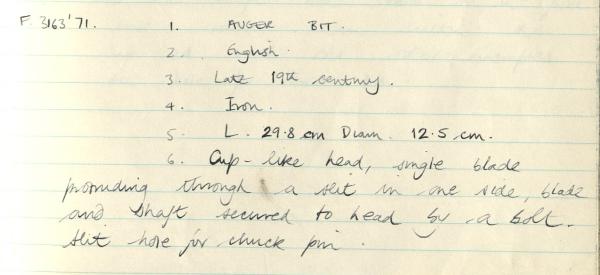 F. 3163'71. 1. AUGER BIT.
2. English.
3. Late 19th century.
4. Iron.
5. L. 29.8 cm Diam. 12.5 cm.
6. Cup-like head, single blade
protruding through a slit in one side, blade
and shaft secured to head by a bolt.
Slit hole for chuck pin.